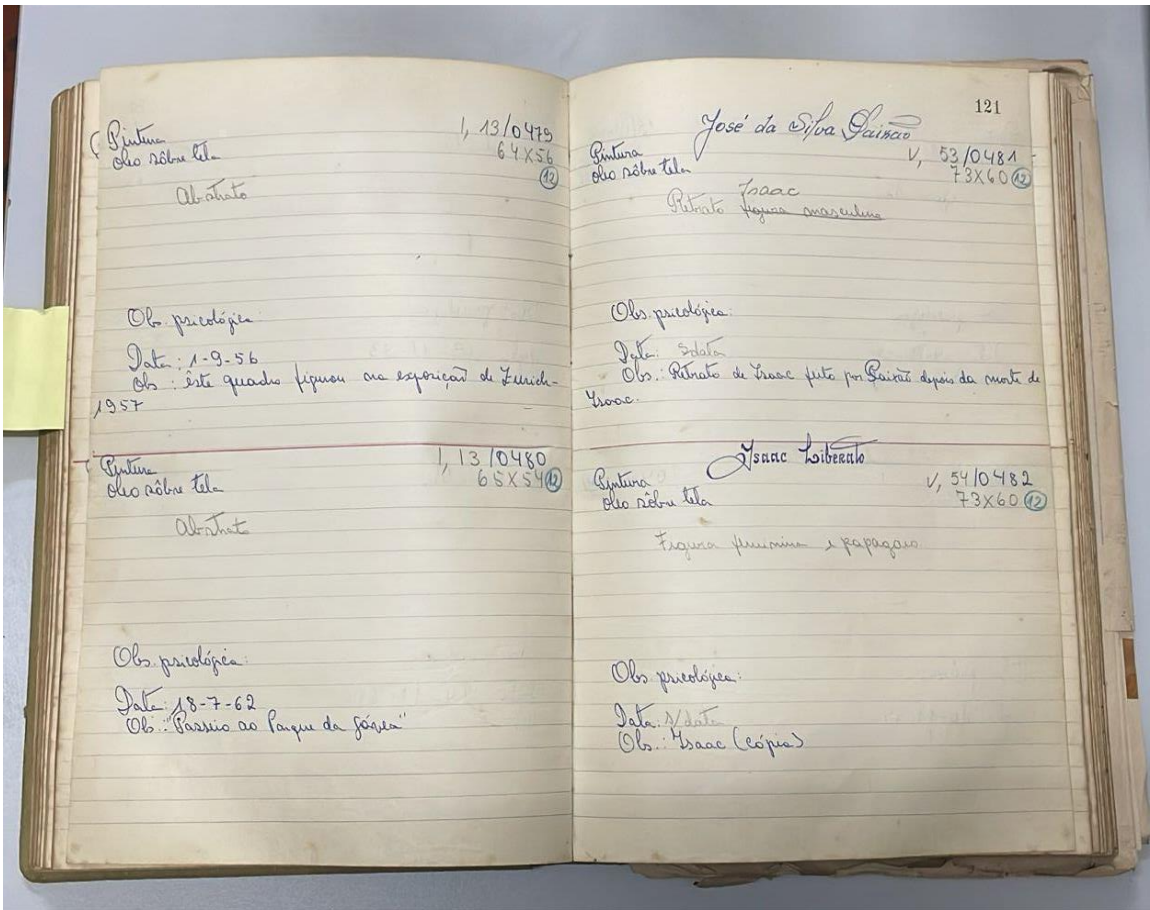 Pintura 1, 13/0479
oleo sôbre tela 64X56
12
Abstrato
Obs. psicológica
Data: 1-9-56
Obs: êste quadro figurou na exposição de Zurich-
1957
Pintura 1, 13/0480
oleo sôbre tela 65X54 12
Abstrato
Obs. psicológica:
Data: 18-7-62
Obs: "Passeio ao Parque da Gávea"
121
José da Silva Paixão
Pintura V, 53/0481
oleo sôbre tela 73X60 12
Isaac
Retrato figura masculina
Obs. psicológica:
Data: s data
Obs.: Retrato de Isaac feito por Paixão depois da morte de
Isaac.
Isaac Liberato
Pintura V, 54/0482
oleo sôbre tela 73X60 12
Figura feminina e papagaio
Obs. psicológica:
Data: s/data
Obs.: Isaac (cópia)